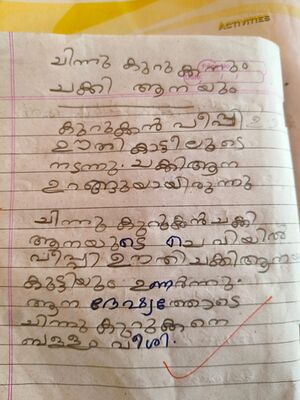 ACTIVITIES
ചിന്നു കുറുക്കനും
ചക്കി ആന യും
കുറുക്കൻ പീപ്പി
ഊതി കാട്ടിലൂടെ
നടന്നു. ചക്കിആന
ഉറങ്ങുയായിരുന്നു
ചിന്നു കുറുക്കൻ ചക്കി
ആനയുടെ ചെവിയിൽ
പീപ്പി ഊതി ചക്കിആനയ
കുട്ടിയും ഉണർന്നു.
ആന ദേഷ്യത്തോടെ
ചിന്നു കുറുക്കനെ
ബള്ളം വീശി.